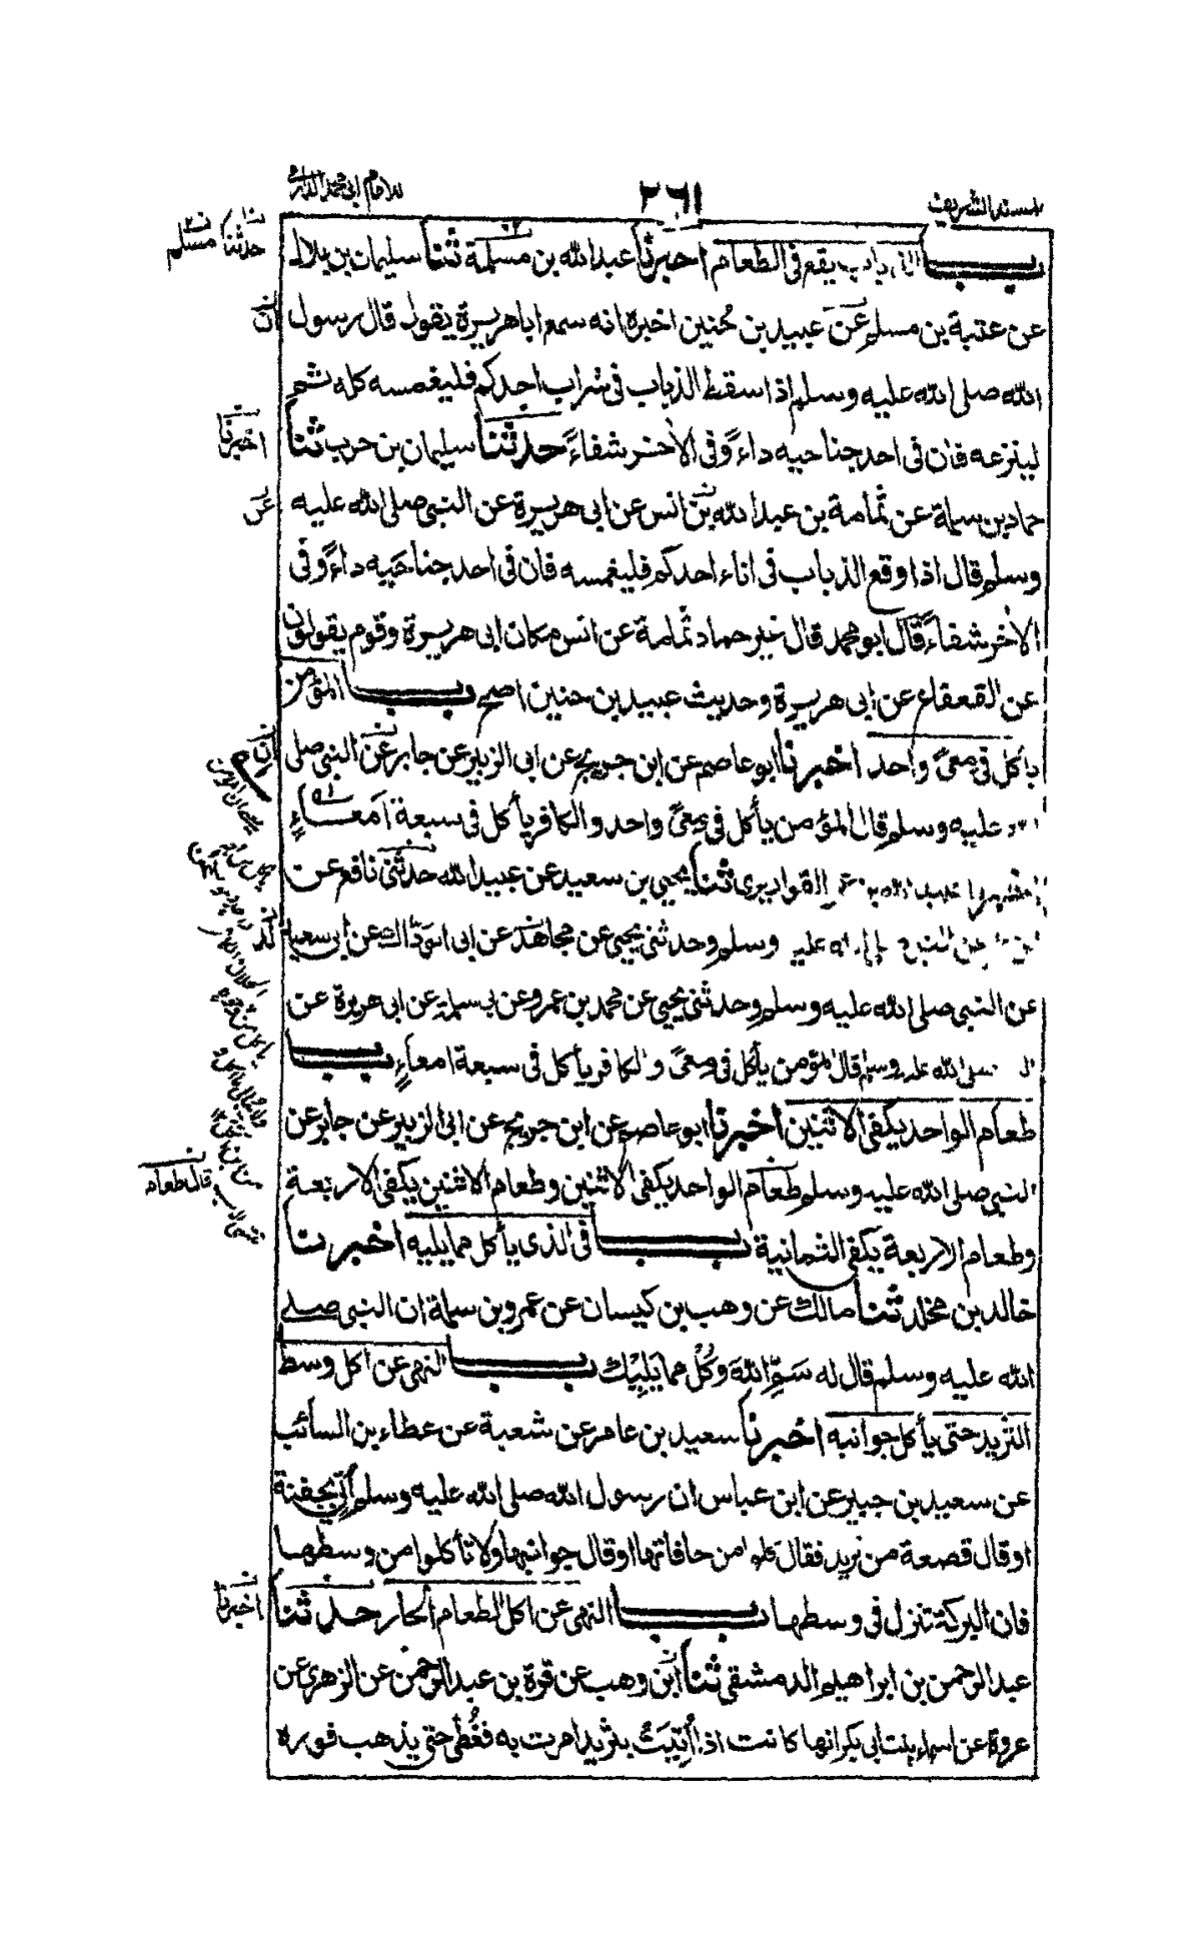 المسند الشريف
٢٦١
للامام ابى محمد الدارمى
باب الذباب يقع فى الطعام اخبرنا عبد الله بن مسلمة ثنا سليمان بن بلال
حدثنا مسلم
عن عتبة بن مسلم عن عبيد بن حُنين اخبره انه سمع ابا هريرة يقول قال رسول
ان
الله صلى الله عليه وسلم اذا سقط الذباب فى شراب احدكم فليغمسه كله ثم
لينزعه فان فى احد جناحيه داءً وفى الاخر شفاءً حدثنا سليمان بن حرب ثنا
اخبرنا
حماد بن سلمة عن ثمامة بن عبد الله بن انس عن ابى هريرة عن النبى صلى الله عليه
عن
وسلم قال اذا وقع الذباب فى اناء احدكم فليغمسه فان فى احد جناحَيه داءً وفى
الاخر شفاءً قال ابو محمد قال غير حماد ثمامة عن انس مكان ابى هريرة وقوم يقولون
عن القعقاع عن ابى هريرة وحديث عبيد بن حنين اصح باب المؤمن
يأكل فى معىً واحد اخبرنا ابو عاصم عن ابن جريج عن ابى الزبير عن جابر عن النبى صلى
ان
عليه وسلم قال المؤمن يأكل فى معىً واحد والكافر يأكل فى سبعة امعاءٍ
القواريرى ثنا يحيى بن سعيد عن عبيد الله حدثنى نافع عن
عن النبى عليه وسلم وحدثنى يحيى عن مجاهد عن ابى الودّاك عن ابى سعيد
عن النبى صلى الله عليه وسلم وحدثنى يحيى عن محمد بن عمرو عن بى سلمة عن ابى هريرة عن
صلى الله عليه وسلم قال المؤمن يأكل فى مِعىً والكافر يأكل فى سبعة امعاءٍ باب
طعام الواحد يكفى الاثنين اخبرنا ابو عاصم عن ابن جريج عن ابى الزبير عن جابر عن
النبى صلى الله عليه وسلم طعام الواحد يكفى الاثنين وطعام الاثنين يكفى الاربعة
قال طعام
وطعام الاربعة يكفى الثمانية باب فى الذى يأكل مما يليه اخبرنا
خالد بن مخلد ثنا مالك عن وهب بن كيسان عن عمرو بن سلمة ان النبى صلى
الله عليه وسلم قال له سَمِّ اللهَ وَكُلْ مما يَلِيْكَ باب النهى عن اكل وسط
الثريد حتى يأكل جوانبه اخبرنا سعيد بن عامر عن شعبة عن عطاء بن السائب
عن سعيد بن جبير عن ابن عباس ان رسول الله صلى الله عليه وسلم أُتِىَ بجفنة
او قال قصعة من ثريد فقال كلوا من حافاتها او قال جوانبها ولا تأكلوا من وسطها
فان البركة تنزل فى وسطها باب النهى عن اكل الطعام الحار حدثنا
اخبرنا
عبد الرحمن بن ابراهيم الدمشقى ثنا ابن وهب عن قرة بن عبد الرحمن عن الزهرى عن
عروة عن اسماء بنت ابى بكر انها كانت اذا أُتِيَتْ بثريد امرت به فغُطِّى حتى يذهب فوره